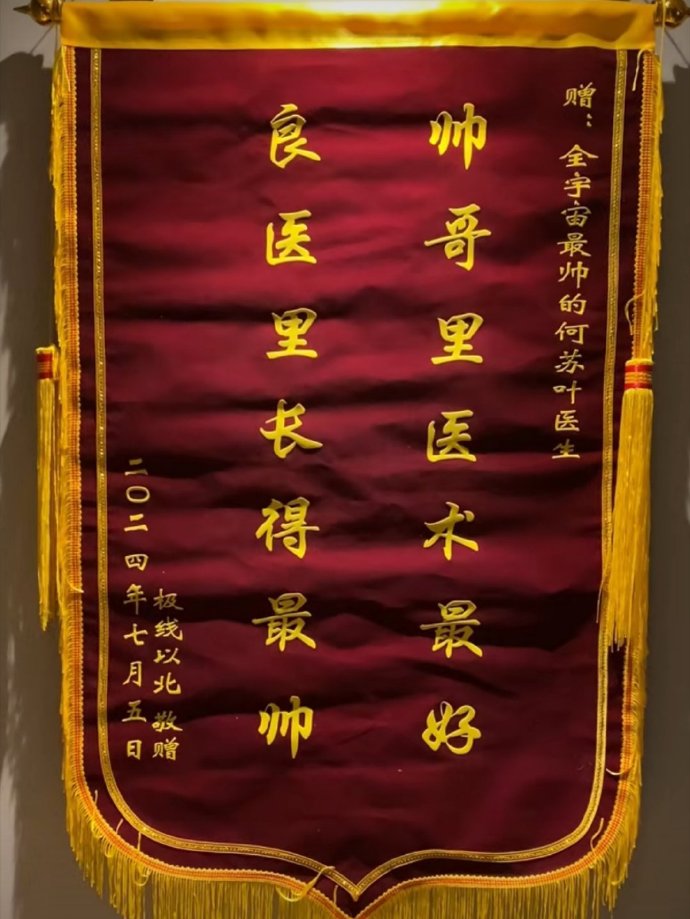 赠：全宇宙最帅的何苏叶医生
帅哥里医术最好
良医里长得最帅
极线以北 敬赠
二〇二四年七月五日